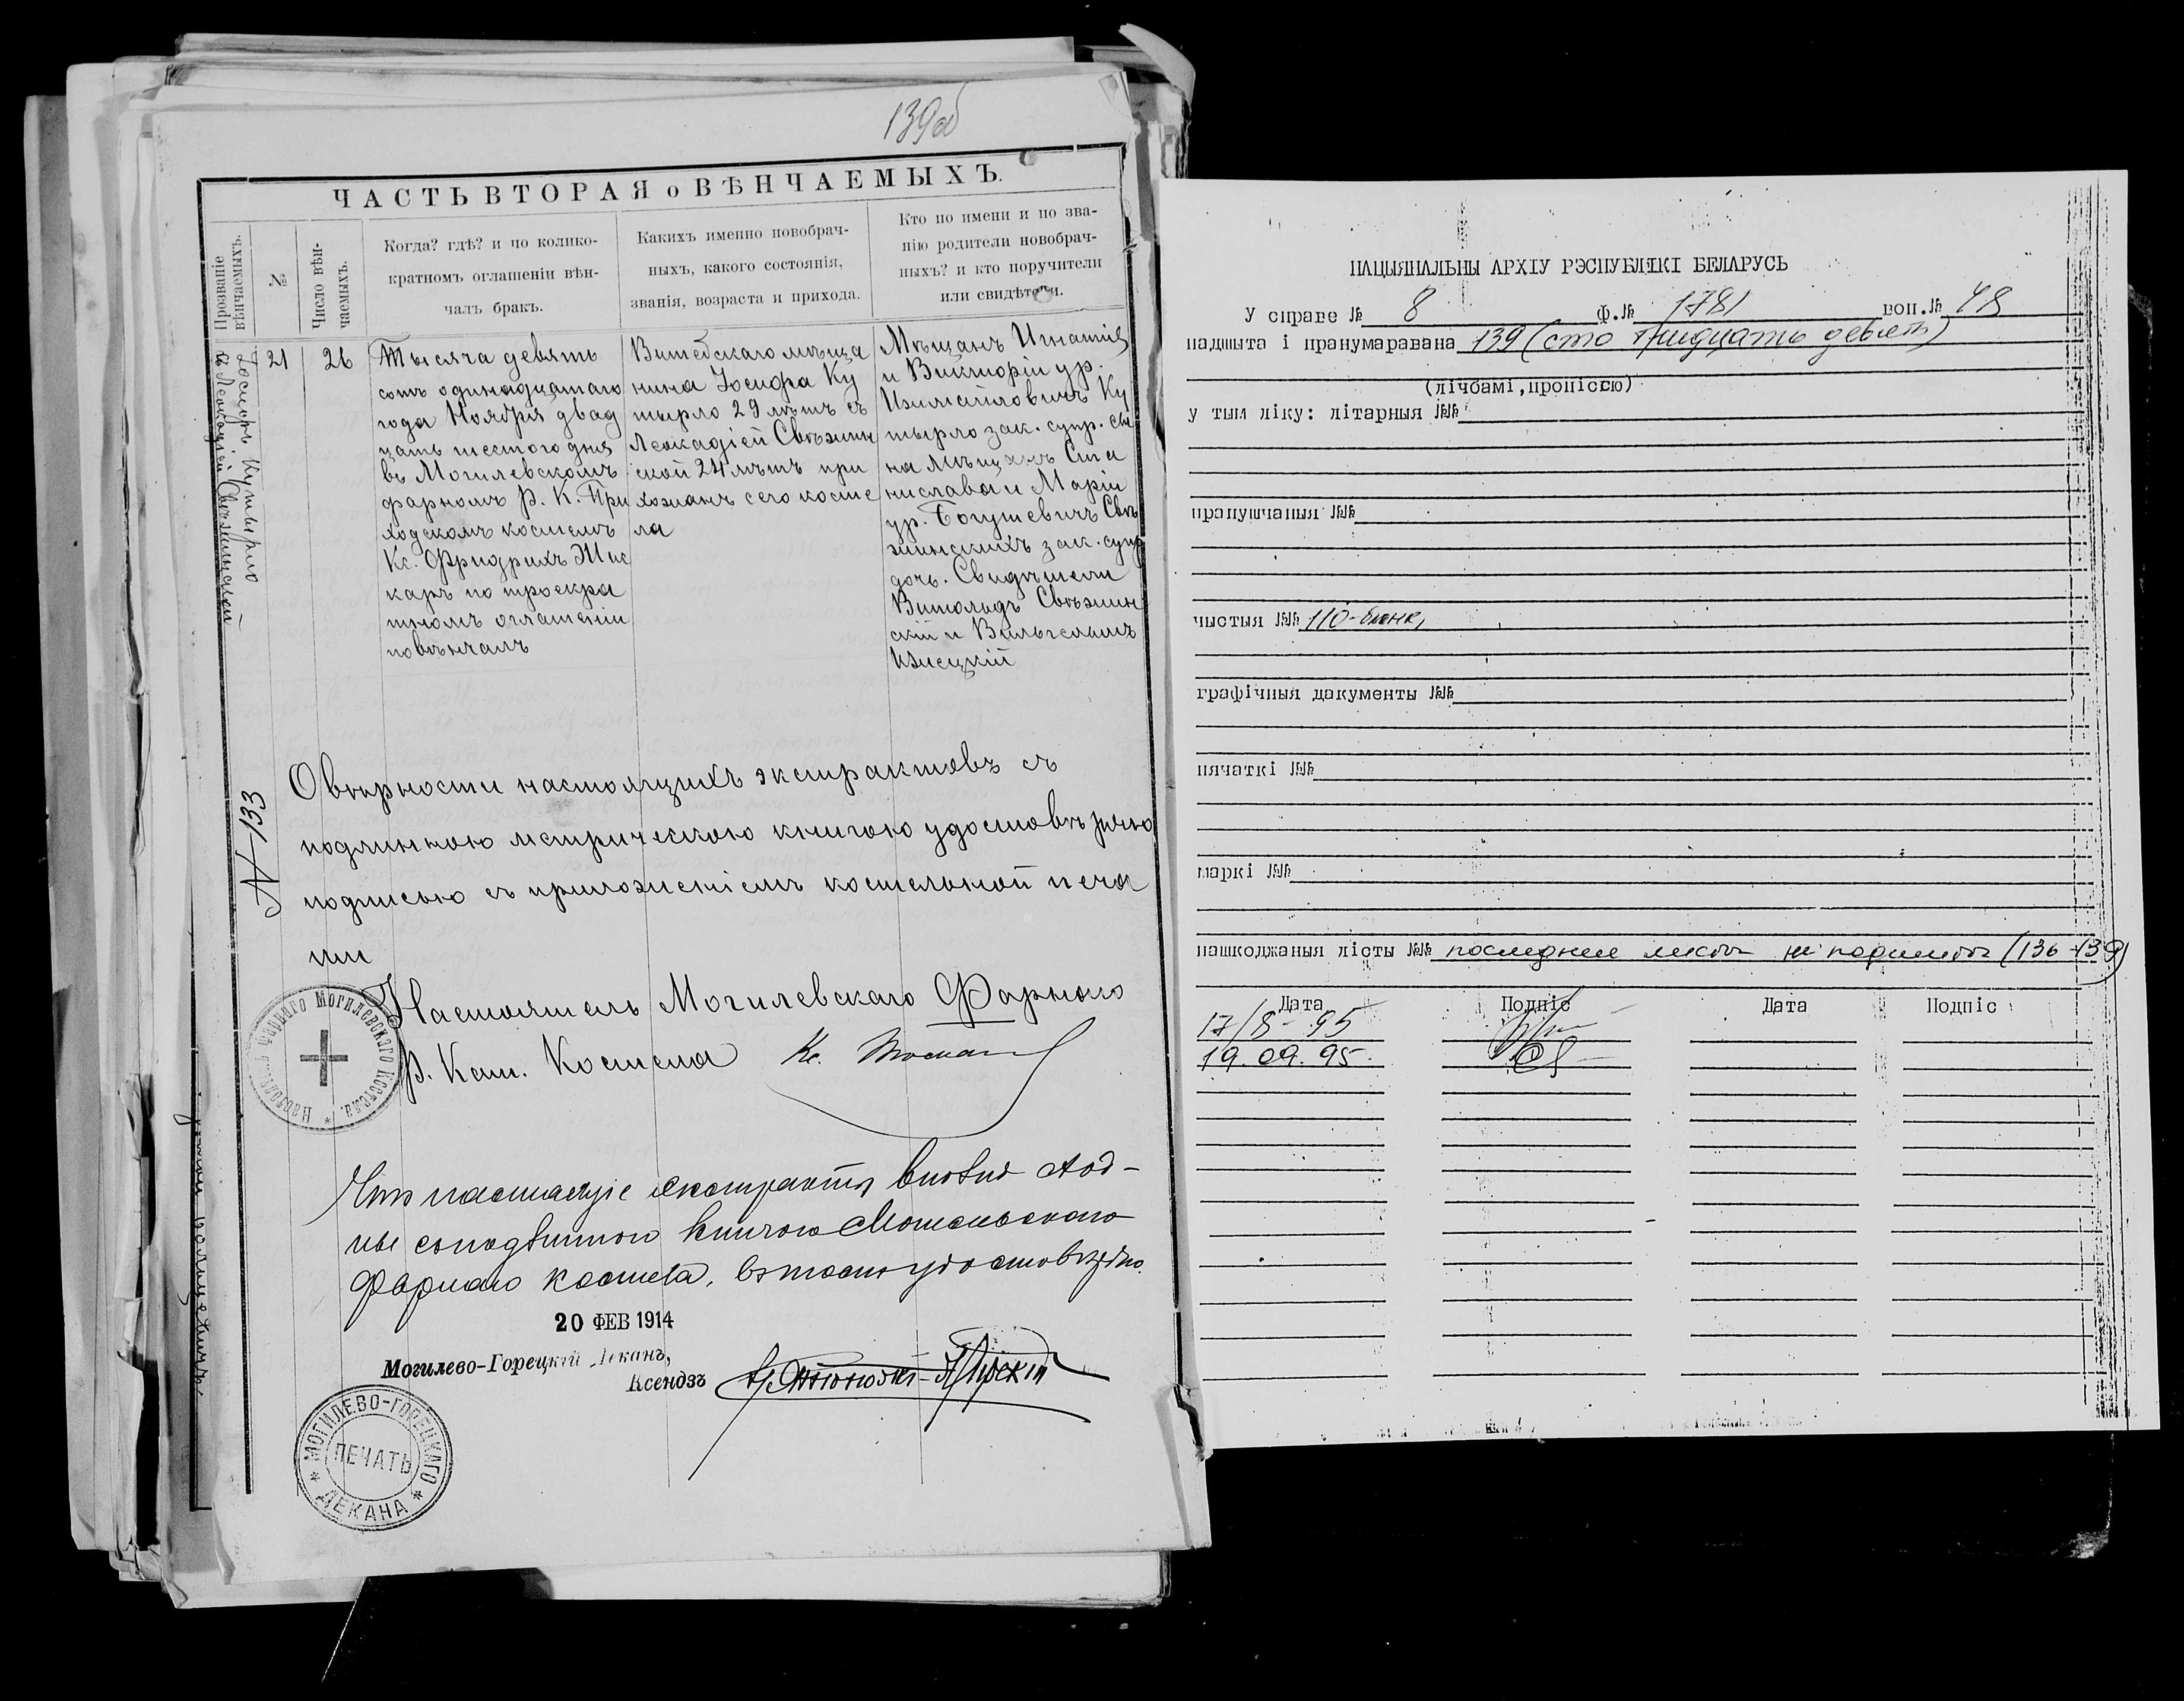 139об
ЧАСТЬ ВТОРАЯ о ВѢНЧАЕМЫХЪ.
Прозваніе вѣнчаемыхъ.
№
Число вѣн-
чаемыхъ.
Когда? гдѣ? и по колико-
кратномъ оглашеніи вѣн-
чалъ бракъ.
Какихъ именно новобрач-
ныхъ, какого состоянія,
званія, возраста и прихода.
Кто по имени и по зва-
нію родители новобрач-
ныхъ? и кто поручители
или свидѣтели.
Іосифъ Кутырло
съ Леокадіей Свѣжинской
21
26
Тысяча девять
сотъ одинадцатаго
года Ноября двад
цать шестого дня
въ Могилевскомъ
фарномъ Р. К. При
ходскомъ костелѣ
Кс. Фридрихъ
каръ по троекра
тномъ оглашеніи
повѣнчалъ
Витебскаго мѣща
нина Іосифа Ку
тырло 29 лѣтъ съ
Леокадіей Свѣжин
ской 24 лѣтъ при
хожанъ сего косте
ла
Мѣщанъ Игнатія
и Викторіи ур.
Ку
тырло зак. супр. сы
на мѣщанъ Ста
нислава и Маріи
ур. Богушевичъ Свѣ
жинскихъ зак. супр
дочь. Свидѣтели
Витольдъ Свѣжин
скій и Вильгельмъ
№ 133
О вѣрности настоящихъ экстрактовъ съ
подлинною метрическою книгою удостовѣряю
подписью съ приложеніемъ костельной печа
ти
Настоятель Могилевскаго Фарнаго
Р. Кат. Костела Кс.
Фарнаго Могилевскаго Костела.
Что настоящіе экстракты вполнѣ сход-
ны съ подлинною книгою Могилевскаго
Фарнаго костела, въ томъ удостовѣряю.
20 ФЕВ 1914
Могилево-Горецкій Деканъ,
Ксендзъ
МОГИЛЕВО-ГОРЕЦКАГО
ПЕЧАТЬ
ДЕКАНА
НАЦЫЯНАЛЬНЫ АРХІУ РЭСПУБЛІКІ БЕЛАРУСЬ
У справе № 8 ф.№ 1781 воп.№ 48
падшыта і пранумаравана 139 (сто тридцать девять)
(лічбамі, пропіссю)
у тым ліку: літарныя №№
прапушчаныя №№
чыстыя №№ 110-бланк,
графічныя дакументы №№
пячаткі №№
маркі №№
пашкоджаныя лісты №№ последние листы не подшиты (136-139)
Дата Подпіс Дата Подпіс
17/8-95
19.09.95.